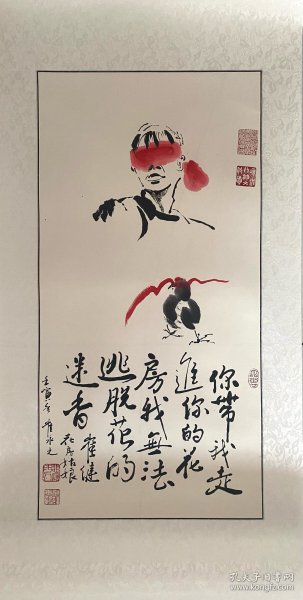 你帶我走
進你的花
房我無法
逃脱花的
迷香 崔健
花房姑娘
壬寅冬
孔夫子旧书网